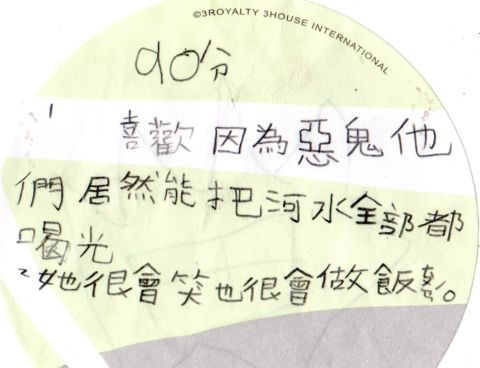 ©3ROYALTY 3HOUSE INTERNATIONAL
90分
1 喜歡 因為惡鬼他
們居然能把河水全部都
喝光
2她很會笑也很會做飯糰。